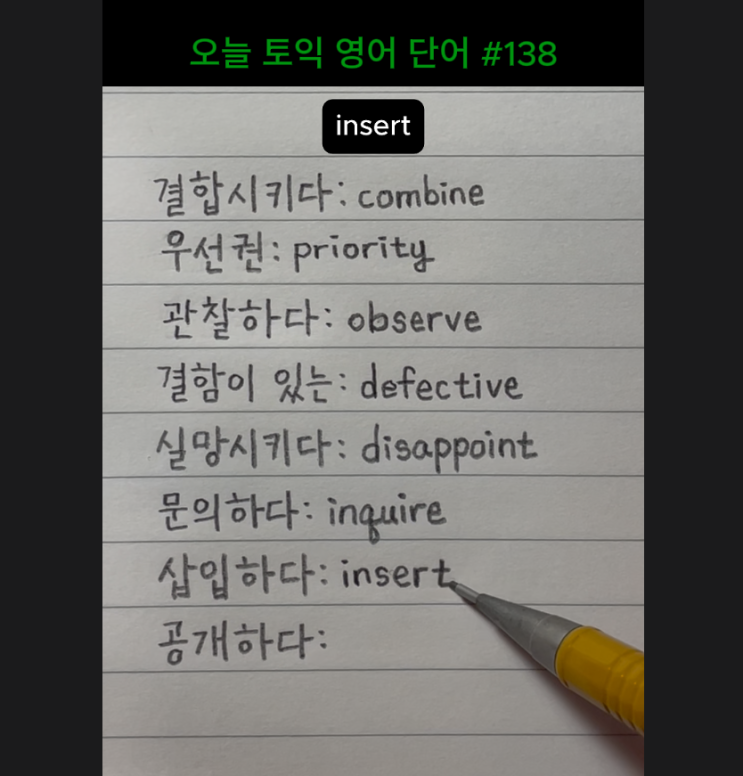 오늘 토익 영어 단어 #138
insert
결합시키다: combine
우선권: priority
관찰하다: observe
결함이 있는: defective
실망시키다: disappoint
문의하다: inquire
삽입하다: insert
공개하다: